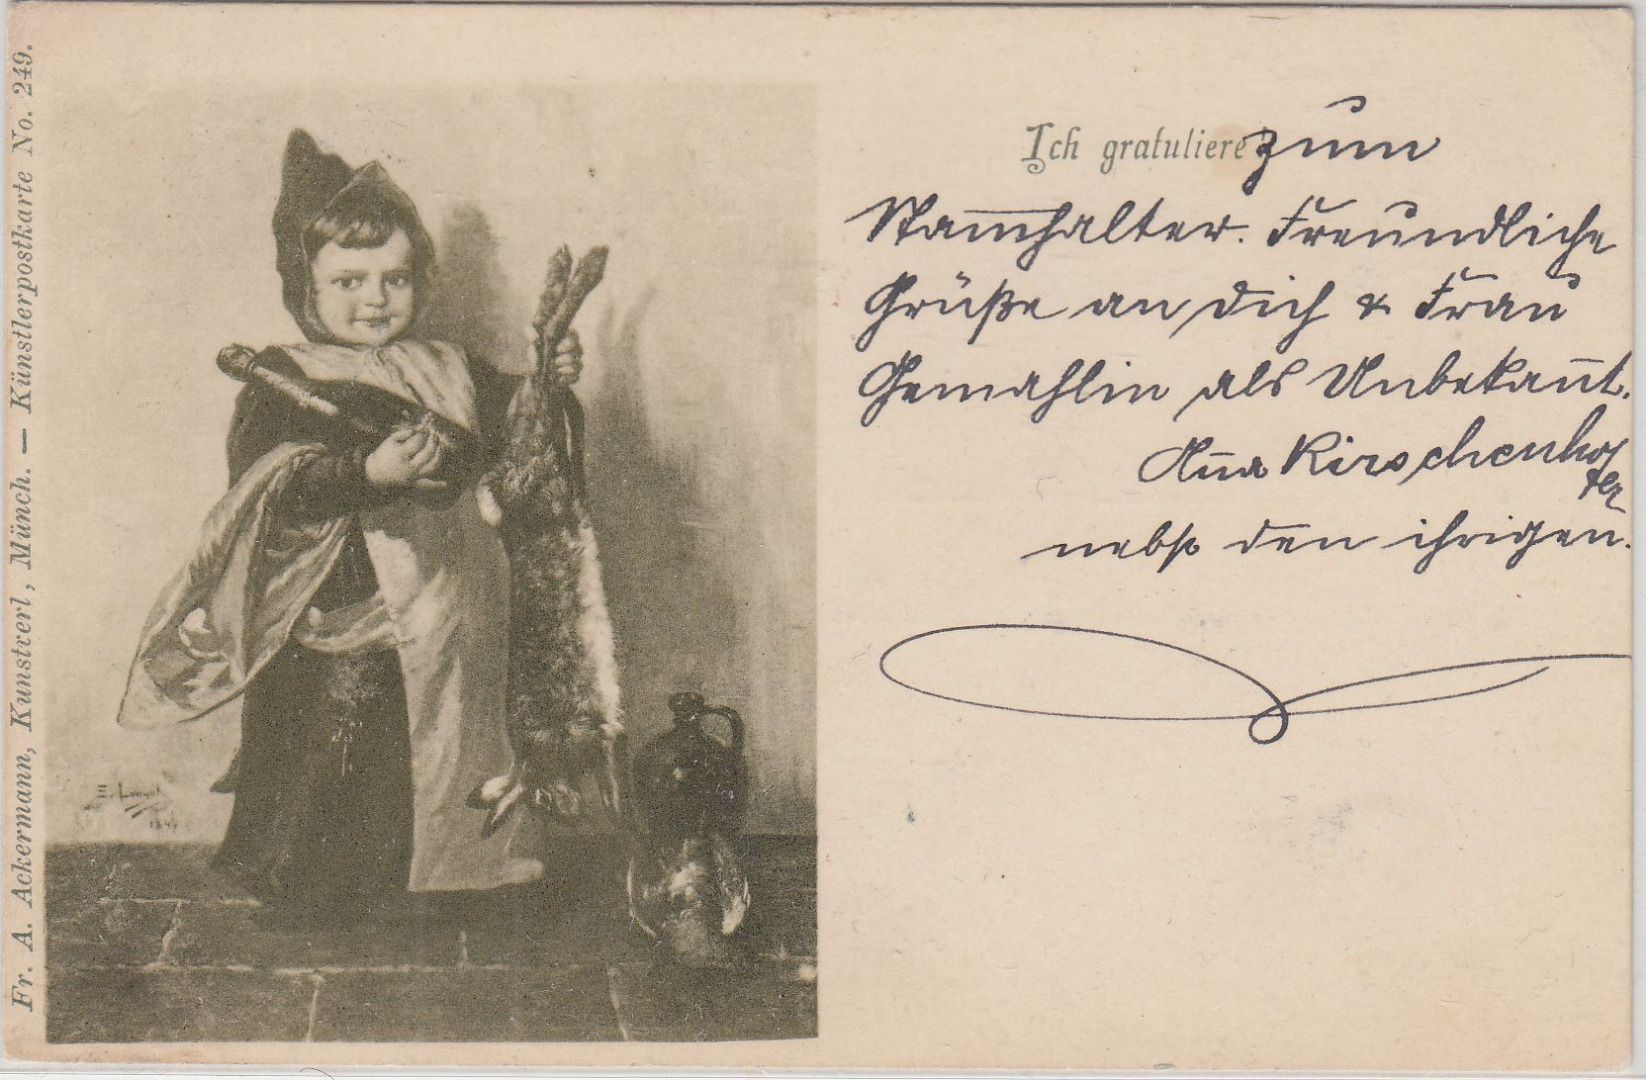 Fr. A. Ackermann, Kunstverl, Münch. — Künstlerpostkarte No. 249.
Ich gratuliere zum
Stam̅halter. Freundliche
Grüße an dich & Frau
Gemahlin als Unbekan̅t.
An̅a Kirschenhof
fer
nebst den ihrigen.